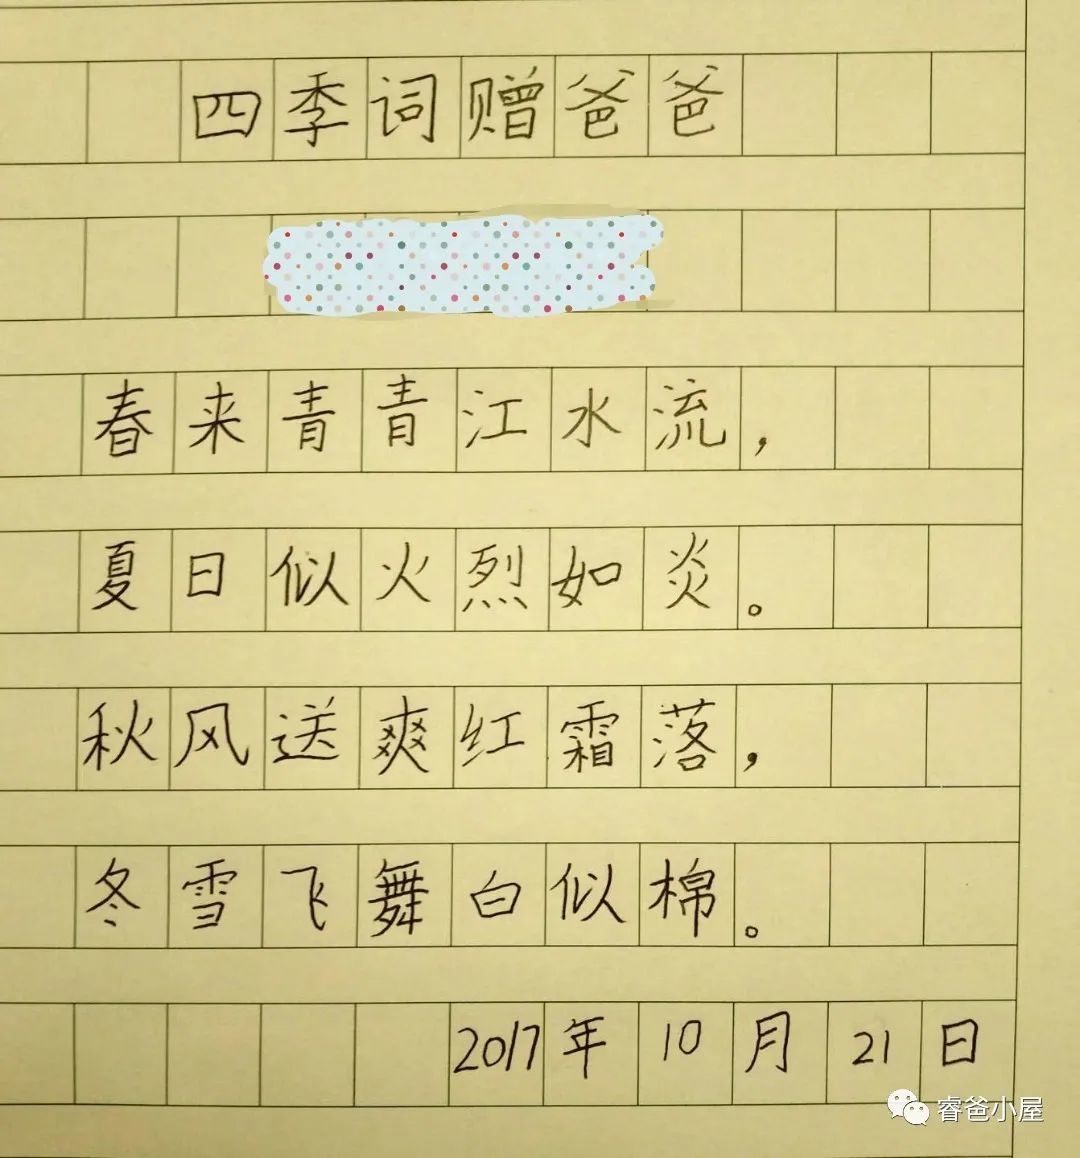 四季词赠爸爸
春来青青江水流，
夏日似火烈如炎。
秋风送爽红霜落，
冬雪飞舞白似棉。
2017年10月21日
睿爸小屋